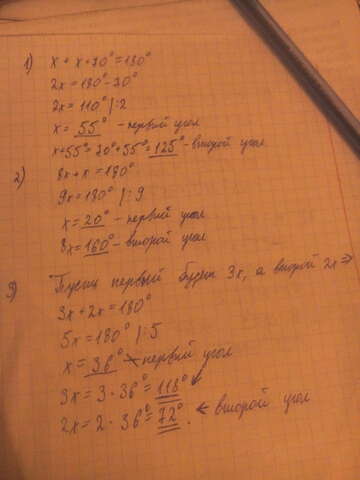 1) x + x + 70° = 180°
2x = 180° - 70°
2x = 110° | : 2
x = 55° - первый угол
x + 55° = 70° + 55° = 125° - второй угол
2) 8x + x = 180°
9x = 180° | : 9
x = 20° - первый угол
8x = 160° - второй угол
3) Пусть первый будет 3x, а второй 2x ⇒
3x + 2x = 180°
5x = 180° | : 5
x = 36° первый угол
3x = 3 · 36° = 118°
2x = 2 · 36° = 72° ← второй угол